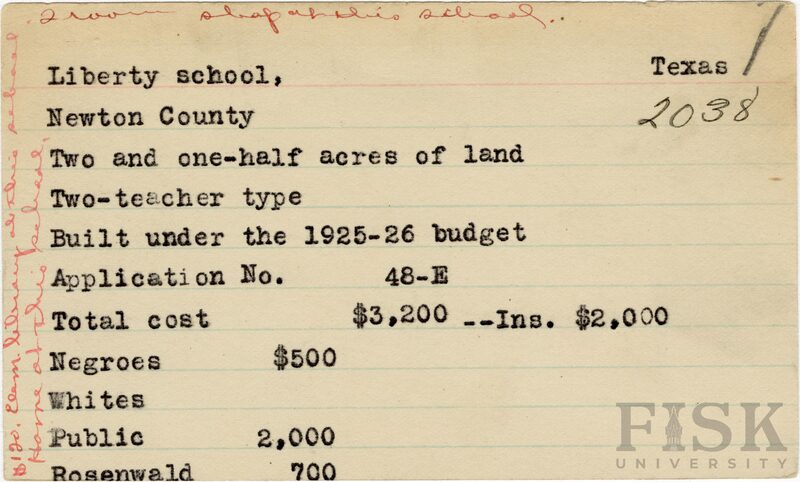 2 room shop at this school.
Liberty school,
Texas
Newton County
2038
Two and one-half acres of land
Two-teacher type
Built under the 1925-26 budget
Application No. 48-E
Total cost $3,200 --Ins. $2,000
Negroes $500
Whites
Public 2,000
Rosenwald 700
$120. Elem. library at this school
Home at this school.
FISK
UNIVERSITY